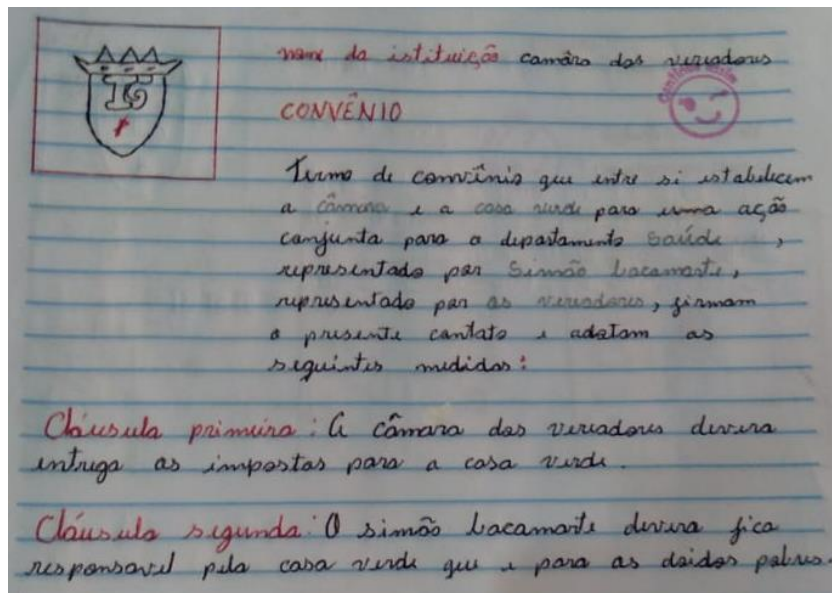 nome da istituição camâra dos vereadores
Continue assim
CONVÊNIO
Termo de convênio que entre si estabelecem
a câmara e a casa verde para uma ação
conjunta para o departamento saúde ,
representado por Simão bacamarte,
representado por os vereadores, firmam
o presente contato e adotam as
seguintes medidas:
Cláusula primeira: A câmara dos vereadores devera
entrega os impostos para a casa verde.
Cláusula segunda: O simão bacamarte devera fica
responsavel pela casa verde que e para os doidos pobres.